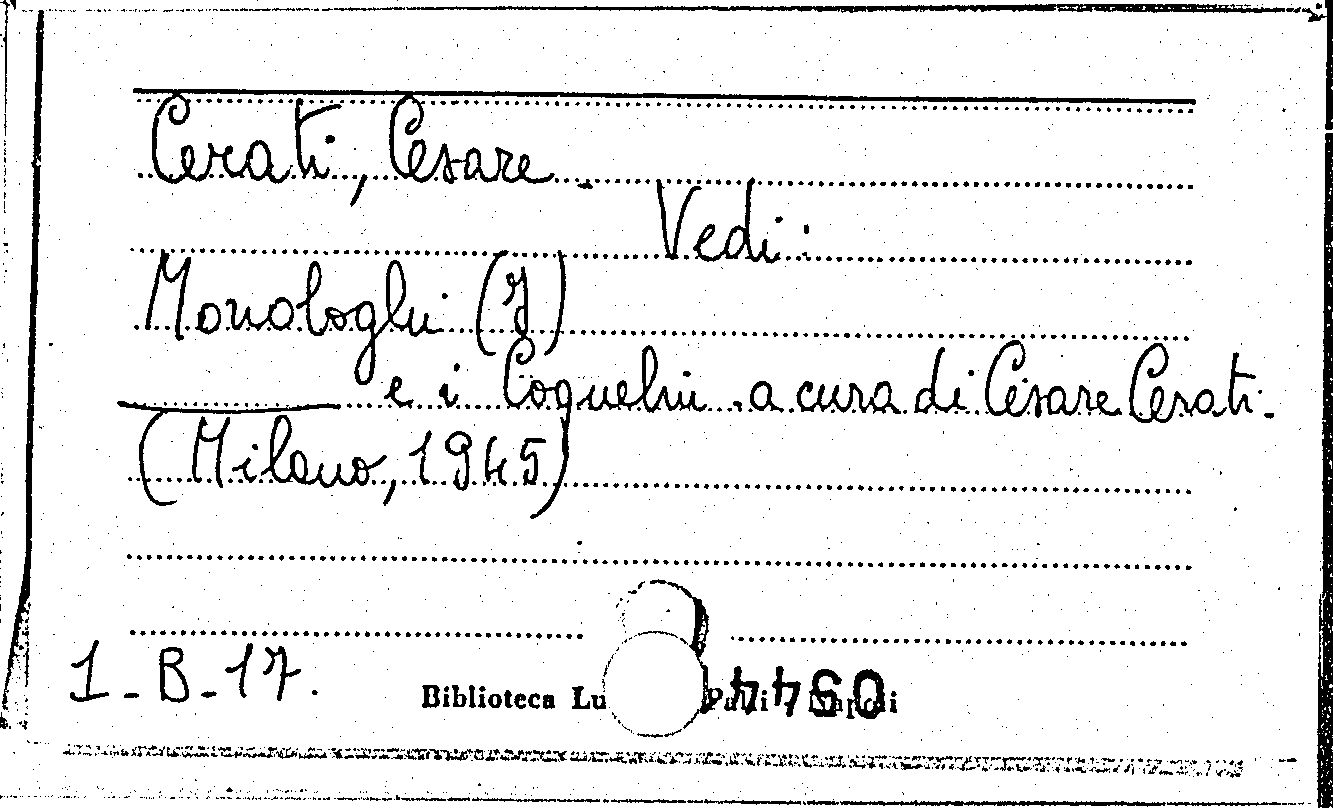 Cerati, Cesare.
Vedi:
Monologhi (I)
e i Coquelin. a cura di Cesare Cerati.
(Milano, 1945)
1-B-17.
Biblioteca Lu